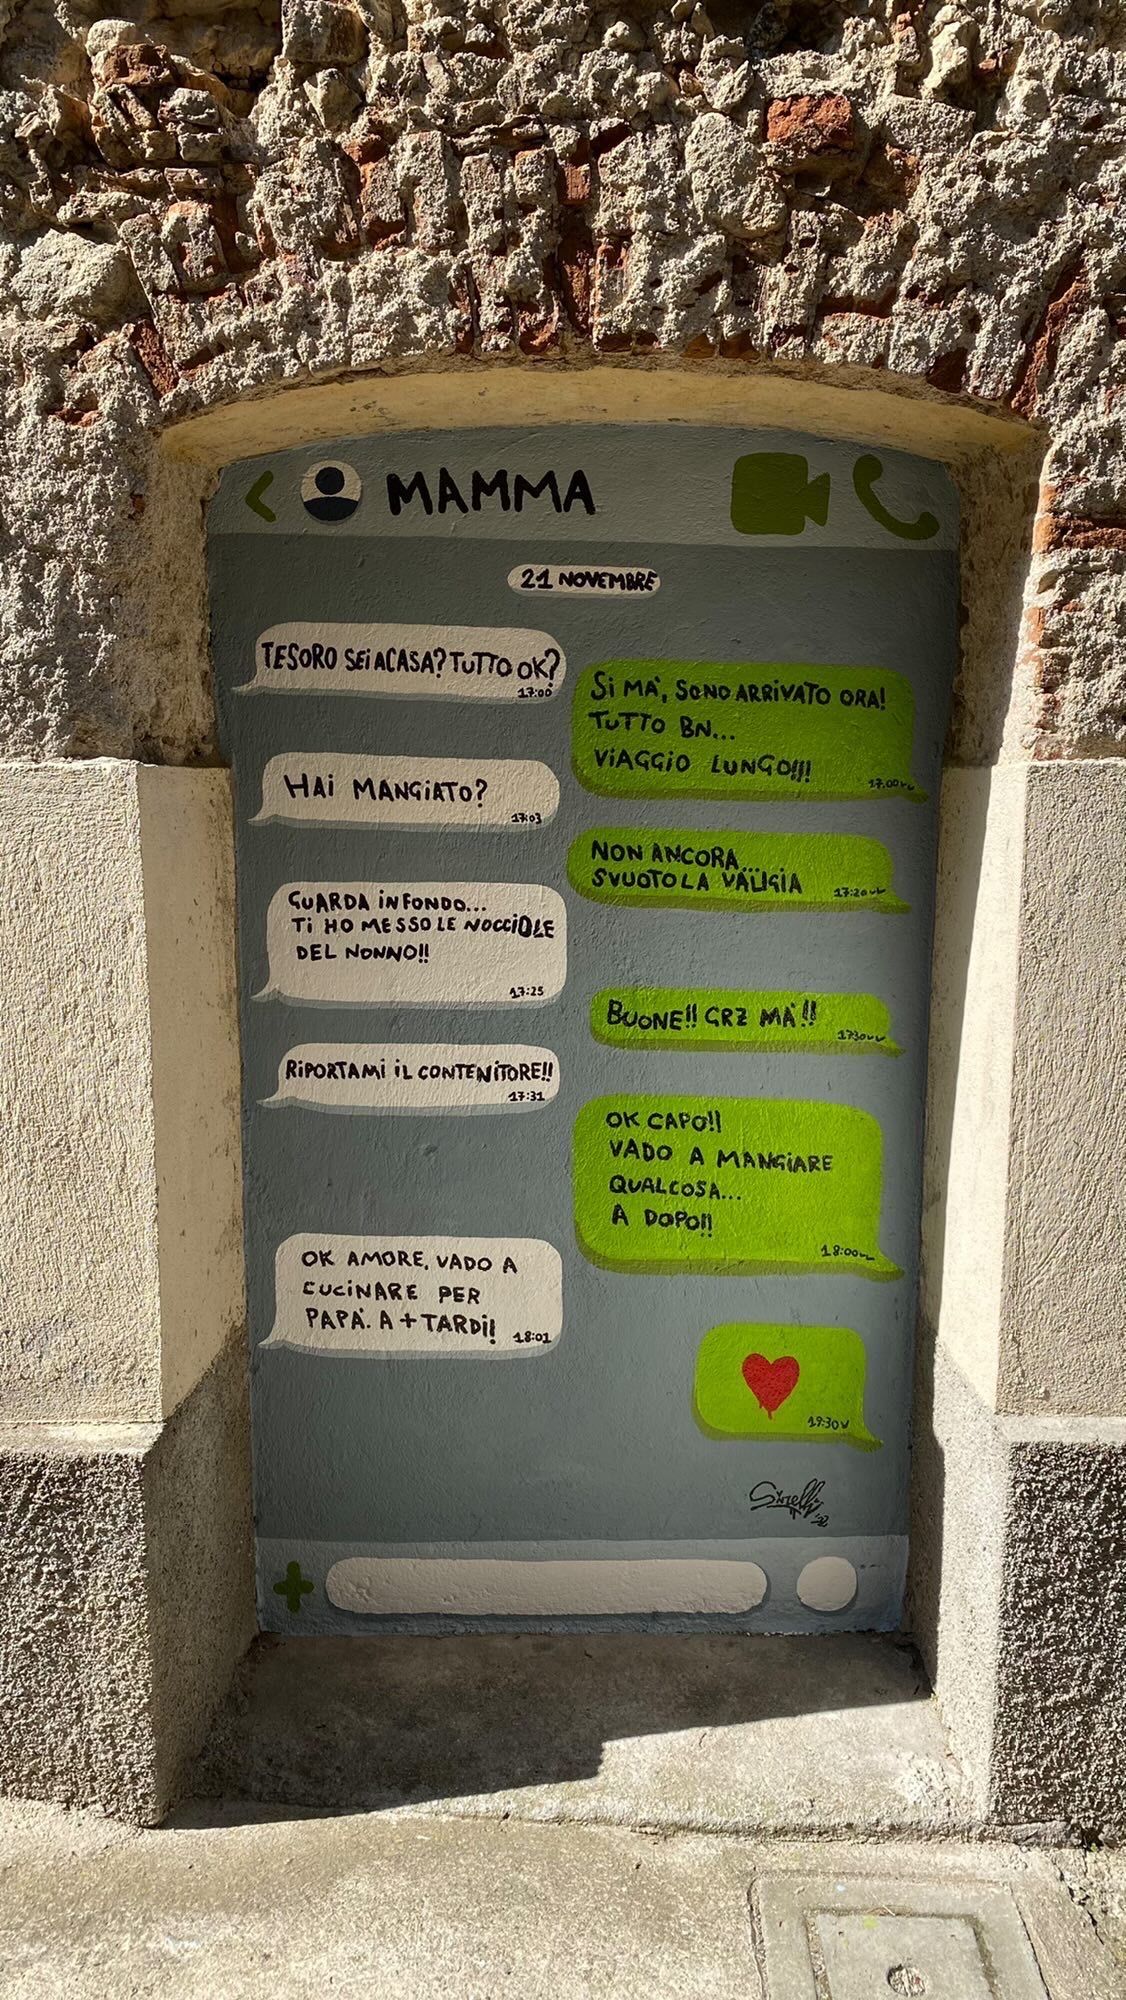 MAMMA
21 NOVEMBRE
TESORO SEI A CASA? TUTTO OK?
17:00
Si MA', SONO ARRIVATO ORA!
TUTTO BN...
ViAGGiO LUNGO!!!
17:00
HAi MANGiATO?
17:03
NON ANCORA...
SVUOTO LA VALIGiA
17:20
GUARDA iN FONDO...
Ti HO MESSO LE NOCCiOLE
DEL NONNO!!
17:25
BUONE!! GRZ MA'!!
17:30
RiPORTAMi iL CONTENiTORE!!
17:31
OK CAPO!!
VADO A MANGiARE
QUALCOSA...
A DOPO!!
18:00
OK AMORE, VADO A
CUCiNARE PER
PAPA'. A + TARDi!!
18:01
19:30